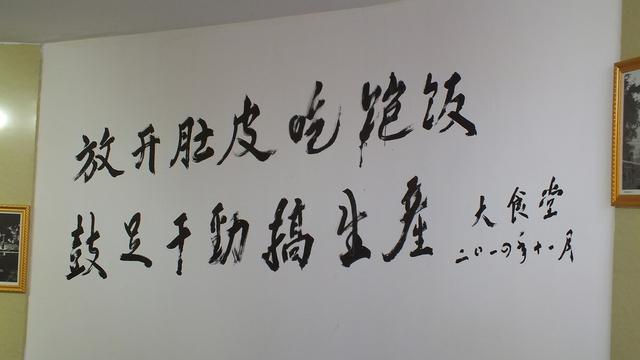 放开肚皮吃饱饭
鼓足干勁搞生產
大食堂
二〇一四年十一月